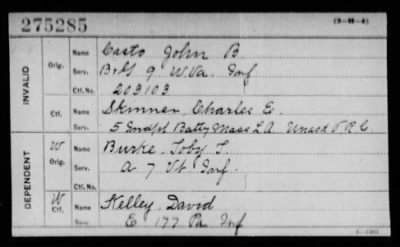 275285 (3-M-4)
INVALID
Orig. Name Casto John B
Serv. B & G 9 W.Va. Inf
Ctf. No. 203103
Ctf. Name Skinner, Charles E.
5 Indpt Batty Mass L A. Unasd V R C.
DEPENDENT
W Orig. Name Burke, Toby T.
Serv. A 7 Vt Inf.
Ctf. No.
W Ctf. Name Kelley David
Serv. E 177 Pa Inf